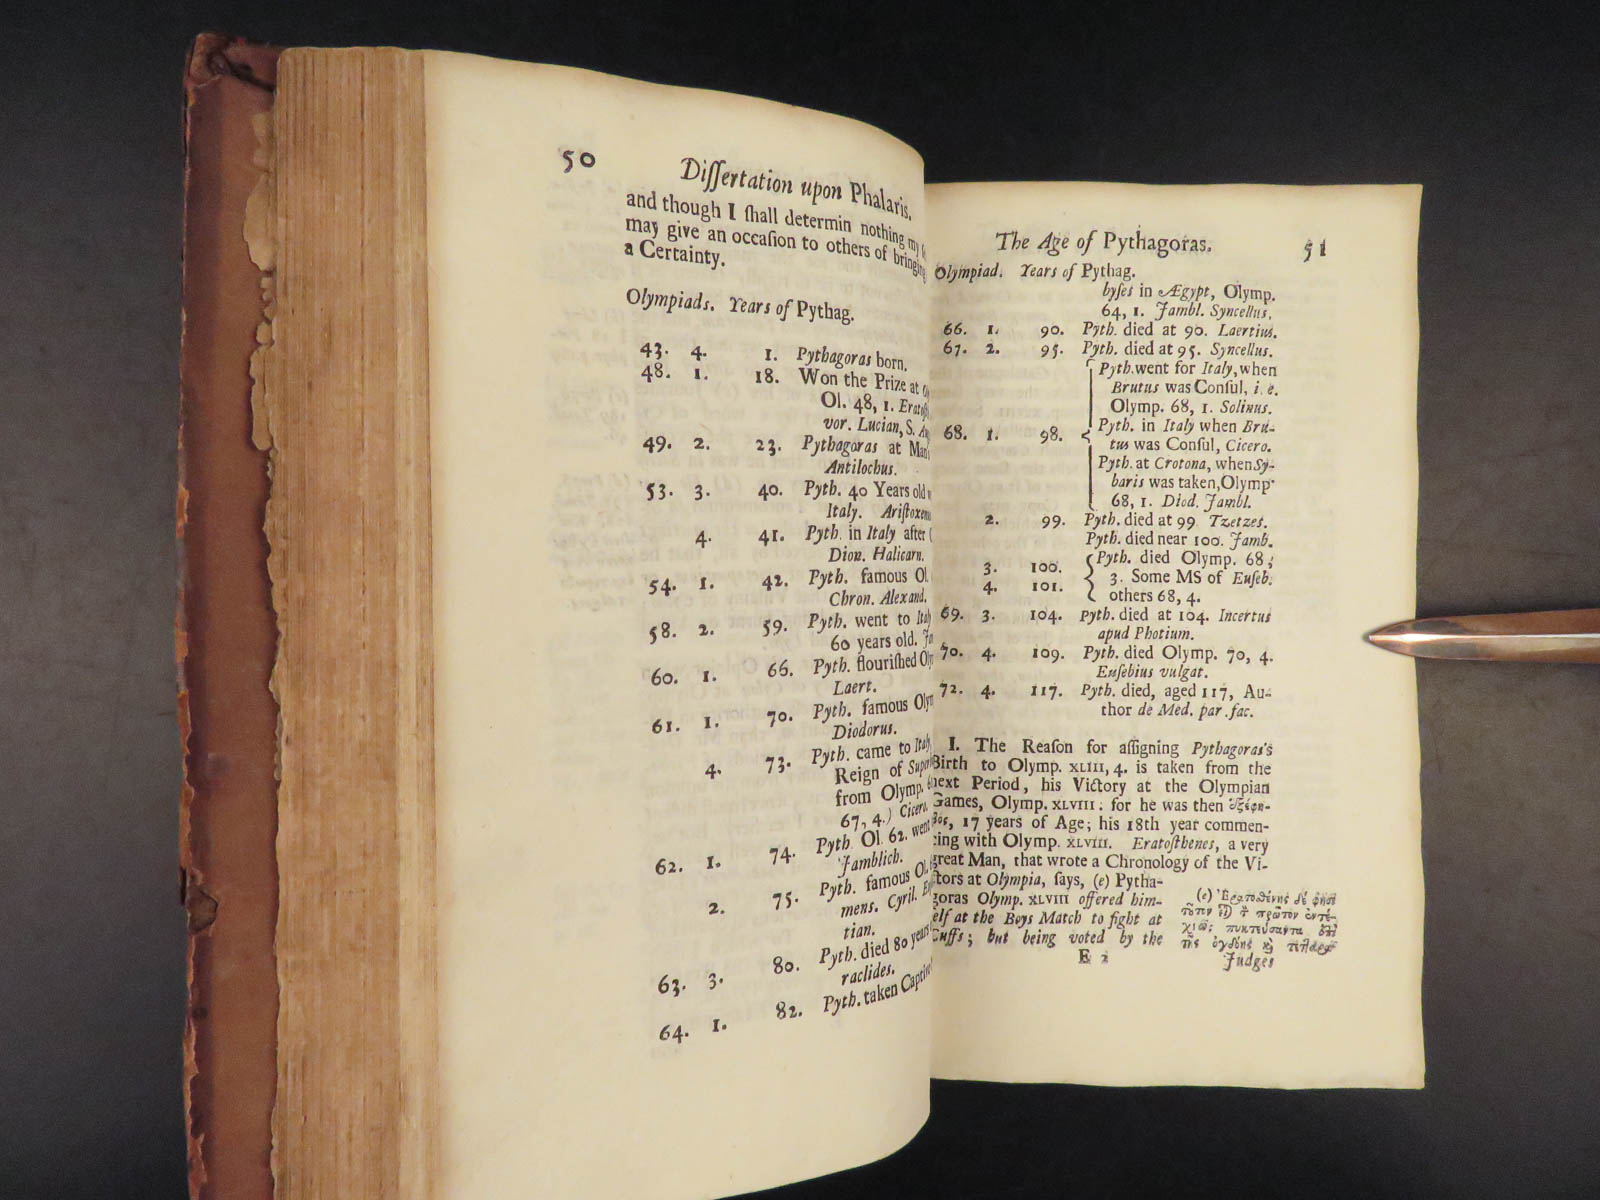 50
Dissertation upon Phalaris.
and though I shall determin nothing my
may give an occasion to others of bringing
a Certainty.
Olympiads. Years of Pythag.
43. 4. 1. Pythagoras born.
48. 1. 18. Won the Prize at
Ol. 48, 1.
vor. Lucian, S.
49. 2. 23. Pythagoras at
Antilochus.
53. 3. 40. Pyth. 40 Years old
Italy.
4. 41. Pyth. in Italy after
Dion. Halicarn.
54. 1. 42. Pyth. famous Ol.
Chron. Alexand.
58. 2. 59. Pyth. went to
60 years old.
60. 1. 66. Pyth. flourished
Laert.
61. 1. 70. Pyth. famous
Diodorus.
4. 73. Pyth. came to
Reign of
from Olymp.
67, 4.) Cicero.
62. 1. 74. Pyth. Ol. 62. went
Jamblich.
2. 75. Pyth. famous Ol.
mens. Cyril.
tian.
63. 3. 80. Pyth. died 80 years
raclides.
64. 1. 82. Pyth. taken
The Age of Pythagoras. 51
Olympiad. Years of Pythag.
byses in Ægypt, Olymp.
64, 1. Jambl. Syncellus.
66. 1. 90. Pyth. died at 90. Laertius.
67. 2. 95. Pyth. died at 95. Syncellus.
Pyth. went for Italy, when
Brutus was Consul, i. e.
Olymp. 68, 1. Solinus.
68. 1. 98. Pyth. in Italy when Bru-
tus was Consul, Cicero.
Pyth. at Crotona, when Sy-
baris was taken, Olymp
68, 1. Diod. Jambl.
2. 99. Pyth. died at 99 Tzetzes.
Pyth. died near 100. Jamb.
3. 100. Pyth. died Olymp. 68;
4. 101. 3. Some MS of Euseb.
others 68, 4.
69. 3. 104. Pyth. died at 104. Incertus
apud Photium.
70. 4. 109. Pyth. died Olymp. 70, 4.
Eusebius vulgat.
72. 4. 117. Pyth. died, aged 117, Au-
thor de Med. par. fac.
I. The Reason for assigning Pythagoras's
Birth to Olymp. XLIII, 4. is taken from the
next Period, his Victory at the Olympian
Games, Olymp. XLVIII: for he was then
17 years of Age; his 18th year commen-
cing with Olymp. XLVIII. Eratosthenes, a very
great Man, that wrote a Chronology of the Vi-
ctors at Olympia, says, (e) Pytha-
goras Olymp. XLVIII offered him-
self at the Boys Match to fight at
Cuffs; but being voted by the
E 2 Judges
(e) Ἐρατοσθένης δέ φησι